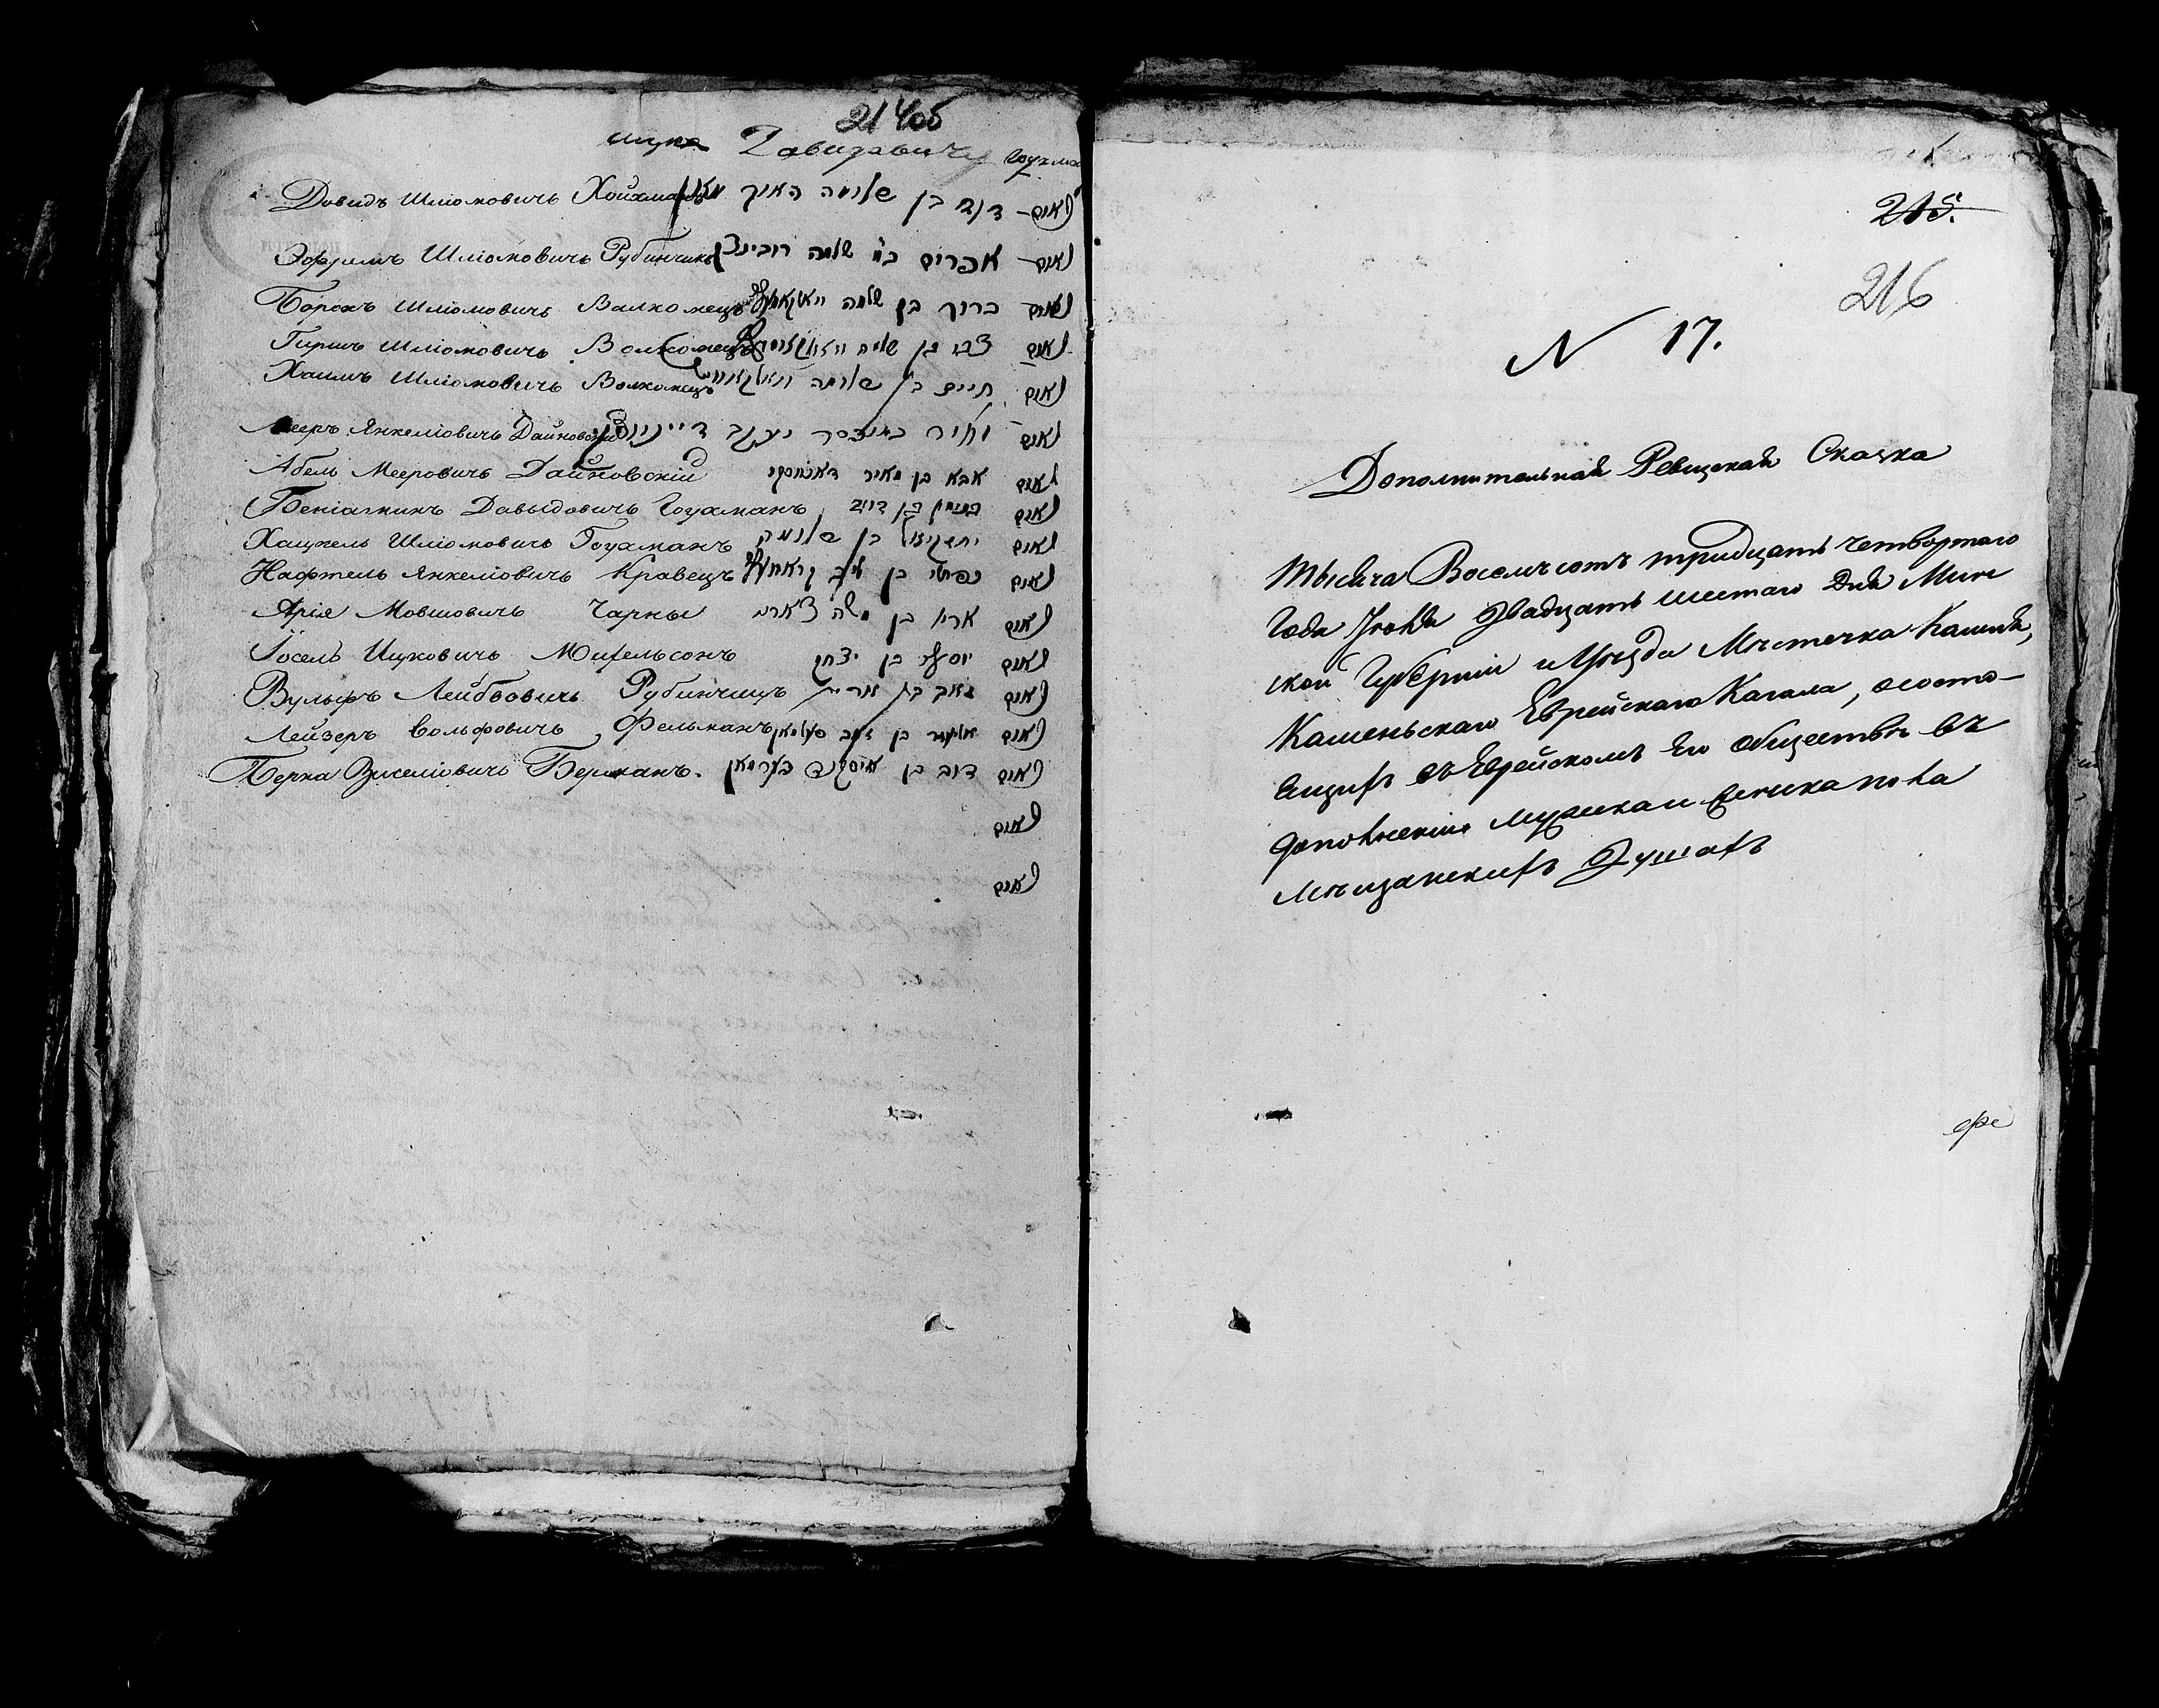 214об
Давидавичъ Гоухман
Довидъ Шліомовичъ Хойхманъ נאום דוד בן שלומה האיך מאן
Эфремъ Шліомовичъ Рубинчикъ נאום אפרים במ שלמה רובינציק
Борохъ Шліомовичъ Валкомецъ נאום ברוך בן שלמה
Гиршъ Шліомовичъ Волкомецъ נאום צבי בן שלמה
Хаимъ Шліомовичъ Волкомецъ נאום חיים בן שלומה
Мееръ Янкеліовичъ Дайновскій נאום מאיר יעקב
Абель Мееровичъ Дайновскій נאום אבא בן מאיר
Беніаминъ Давыдовичъ Гоухманъ נאום בנימין בן דויד
Хацкель Шліомовичъ Гоухманъ נאום יחזקיאל בן שלומה
Нафтель Янкеліовичъ Кравецъ נאום נפתלי בן
Арія Мовшовичъ Чарны נאום אריי בן משה
Іосель Ицковичъ Мительсонъ נאום יוסף בן יצחק
Вульфъ Лейбовичъ Рубинчицъ נאום זאב בן אריה
Лейзеръ Вольфовичъ Фельманъ נאום בן זאב פעלמאן
Берка Зиселіовичъ Берманъ. נאום דוב בן בערמאן
נאום
נאום
215.
216
N 17.
Дополнительная Ревизская Сказка
Тысяча Восемьсотъ тридцать четвертаго
Года Іюня двадцать шестаго дня Мин
ской Губерніи и Уѣзда Мѣстечка Камня,
Каменьскаго Еврейскаго Кагала, о состо-
ящихъ въ Еврейскомъ его обществѣ въ
дополненіи мужска и женска пола
мѣщанскихъ Душахъ